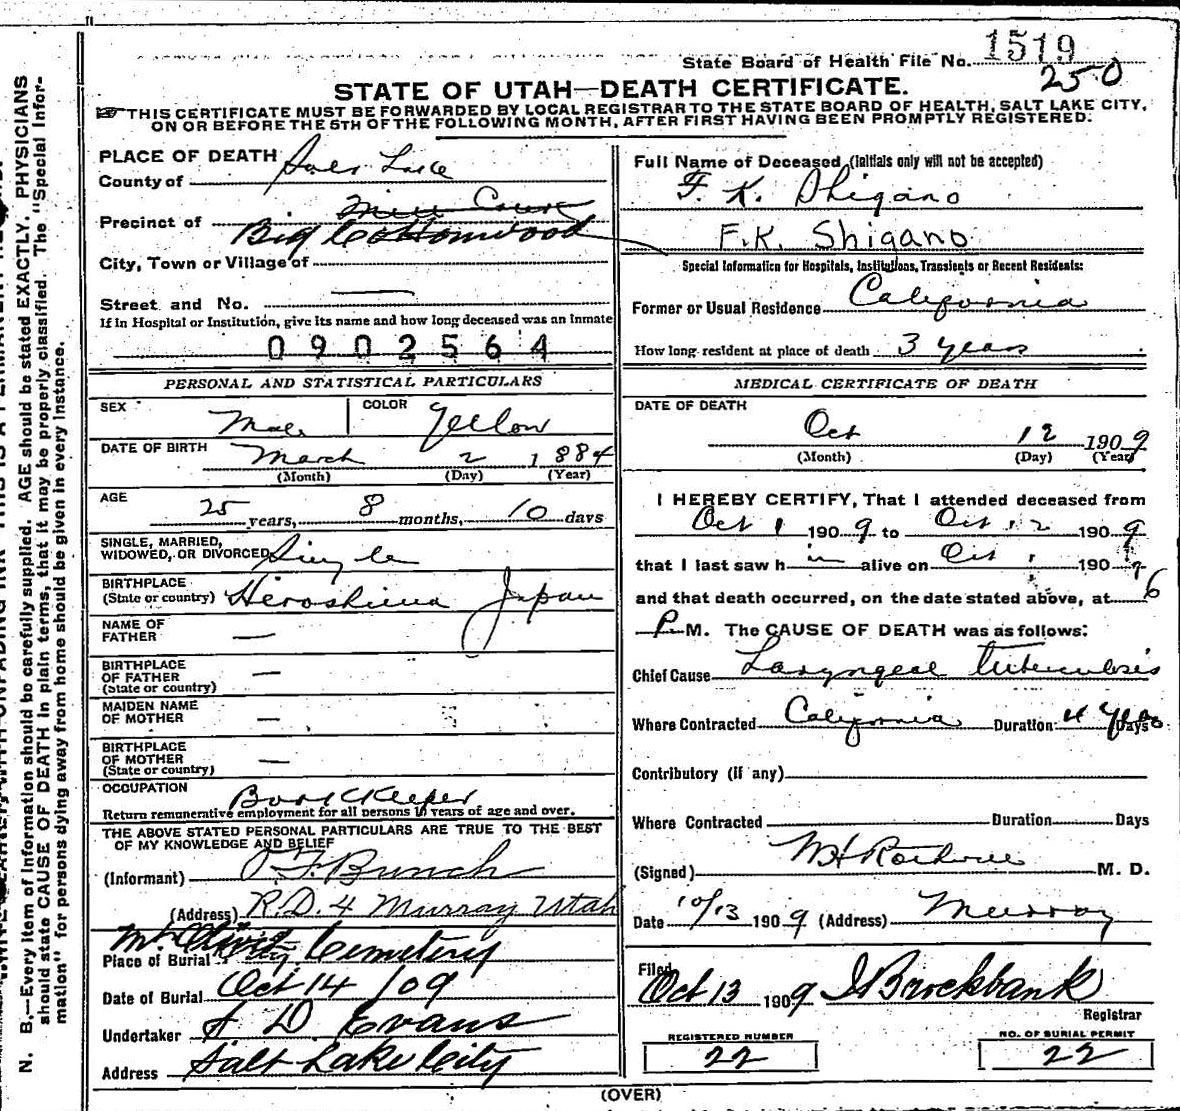 State Board of Health File No. 1519
250
STATE OF UTAH—DEATH CERTIFICATE.
THIS CERTIFICATE MUST BE FORWARDED BY LOCAL REGISTRAR TO THE STATE BOARD OF HEALTH, SALT LAKE CITY,
ON OR BEFORE THE 5TH OF THE FOLLOWING MONTH, AFTER FIRST HAVING BEEN PROMPTLY REGISTERED.
PLACE OF DEATH
County of Salt Lake
Precinct of
Big Cottonwood
City, Town or Village of
Street and No.
If in Hospital or Institution, give its name and how long deceased was an inmate
0902564
PERSONAL AND STATISTICAL PARTICULARS
SEX Male COLOR Yellow
DATE OF BIRTH March 2 1884
(Month) (Day) (Year)
AGE
25 years, 8 months, 10 days
SINGLE, MARRIED,
WIDOWED, OR DIVORCED Single
BIRTHPLACE
(State or country) Hiroshima Japan
NAME OF
FATHER —
BIRTHPLACE
OF FATHER —
(State or country)
MAIDEN NAME
OF MOTHER —
BIRTHPLACE
OF MOTHER —
(State or country)
OCCUPATION Book Keeper
Return remunerative employment for all persons 10 years of age and over.
THE ABOVE STATED PERSONAL PARTICULARS ARE TRUE TO THE BEST
OF MY KNOWLEDGE AND BELIEF
(Informant) Bunch
(Address) R.D. 4 Murray Utah
Place of Burial Mt. Olivet Cemetery
Date of Burial Oct 14 /09
Undertaker Evans
Address Salt Lake City
Full Name of Deceased (Initials only will not be accepted)
F. K. Shigano
F.K. Shigano
Special Information for Hospitals, Institutions, Transients or Recent Residents:
Former or Usual Residence California
How long resident at place of death 3 years
MEDICAL CERTIFICATE OF DEATH
DATE OF DEATH
Oct 12 1909
(Month) (Day) (Year)
I HEREBY CERTIFY, That I attended deceased from
Oct 1 1909 to Oct 12 1909
that I last saw him alive on Oct 1909
and that death occurred, on the date stated above, at 6
P M. The CAUSE OF DEATH was as follows:
Chief Cause Laryngeal Tuberculosis
Where Contracted California Duration 4 Days
Contributory (if any)
Where Contracted Duration Days
(Signed) M. D.
Date 10/13 1909 (Address) Murray
Filed
Oct 13 1909 Brockbank
Registrar
REGISTERED NUMBER
22
NO. OF BURIAL PERMIT
22
(OVER)
N. B.—Every item of information should be carefully supplied. AGE should be stated EXACTLY. PHYSICIANS
should state CAUSE OF DEATH in plain terms, that it may be properly classified. The "Special Infor-
mation" for persons dying away from home should be given in every instance.